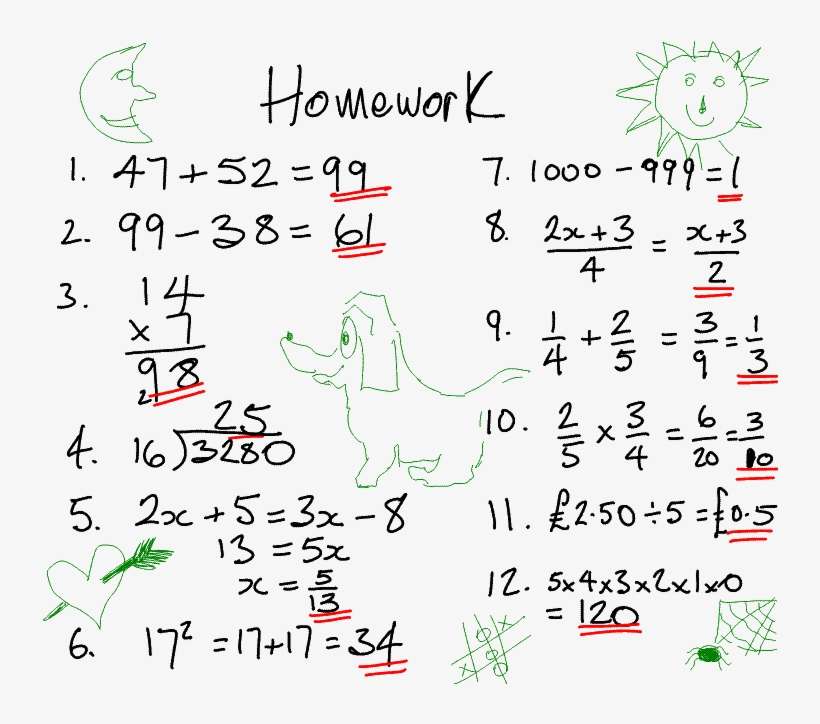 Homework
1. 47 + 52 = 99
2. 99 - 38 = 61
3. 14
x 7
98
2
4. 25
16)3280
5. 2x + 5 = 3x - 8
13 = 5x
x = 5/13
6. 17² = 17+17 = 34
7. 1000 - 999 = 1
8. 2x+3/4 = x+3/2
9. 1/4 + 2/5 = 3/9 = 1/3
10. 2/5 x 3/4 = 6/20 = 3/10
11. £2.50 ÷ 5 = £0.5
12. 5x4x3x2x1x0
= 120